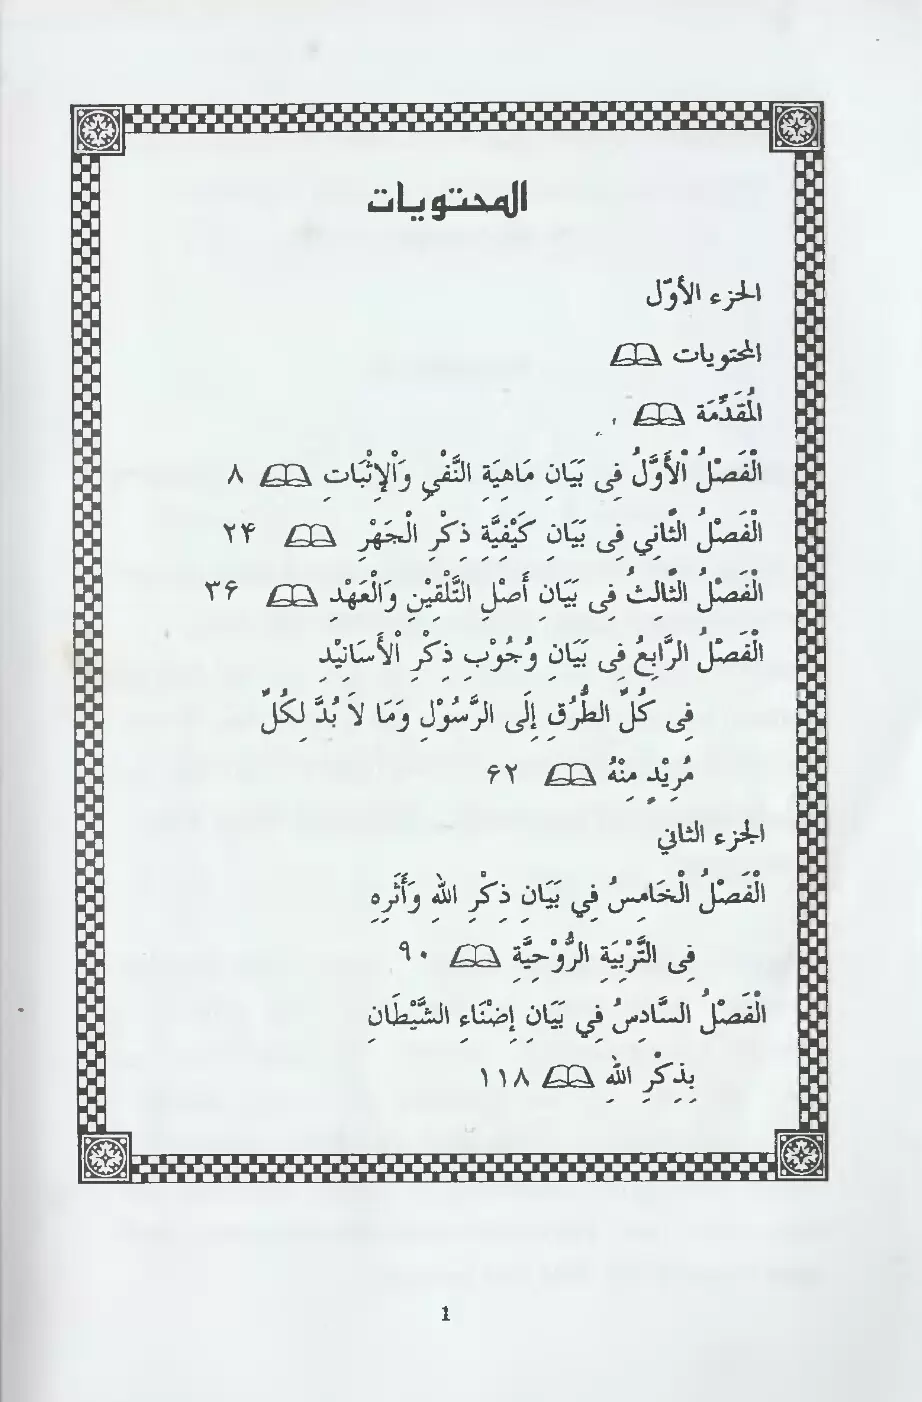 المحتويات
الجزء الأوّل
المحتويات
المُقَدِّمَة
الْفَصْلُ الْأَوَّلُ فِى بَيَانِ مَاهِيَةِ النَّفْيِ وَالْإِثْبَاتِ ٨
الْفَصْلُ الثَّانِي فِى بَيَانِ كَيْفِيَّةِ ذِكْرِ الْجَهْرِ ۲۴
الْفَصْلُ الثَّالِثُ فِى بَيَانِ أَصْلِ التَّلْقِيْنِ وَالْعَهْدِ ۳۶
الْفَصْلُ الرَّابِعُ فِى بَيَانِ وُجُوْبِ ذِكْرِ الْأَسَانِيْدِ
فِى كُلِّ الطُّرُقِ إِلَى الرَّسُوْلِ وَمَا لَا بُدَّ لِكُلِّ
مُرِيْدٍ مِنْهُ ۶۲
الجزء الثاني
الْفَصْلُ الْخَامِسُ فِي بَيَانِ ذِكْرِ اللهِ وَأَثَرِهِ
فِى التَّرْبِيَةِ الرُّوْحِيَّةِ ۹۰
الْفَصْلُ السَّادِسُ فِي بَيَانِ إِضْنَاءِ الشَّيْطَانِ
بِذِكْرِ اللهِ ١١٨
1